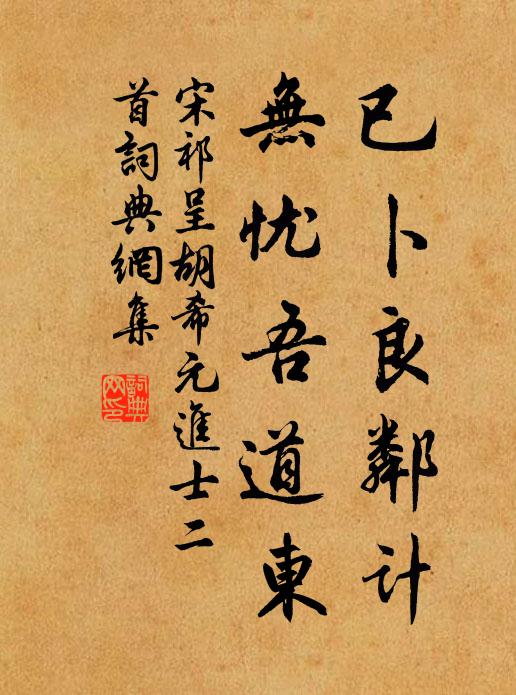 已卜良鄰計
無忧吾道東
宋祁呈胡希元進士二
首詞典網集
詞典
网印